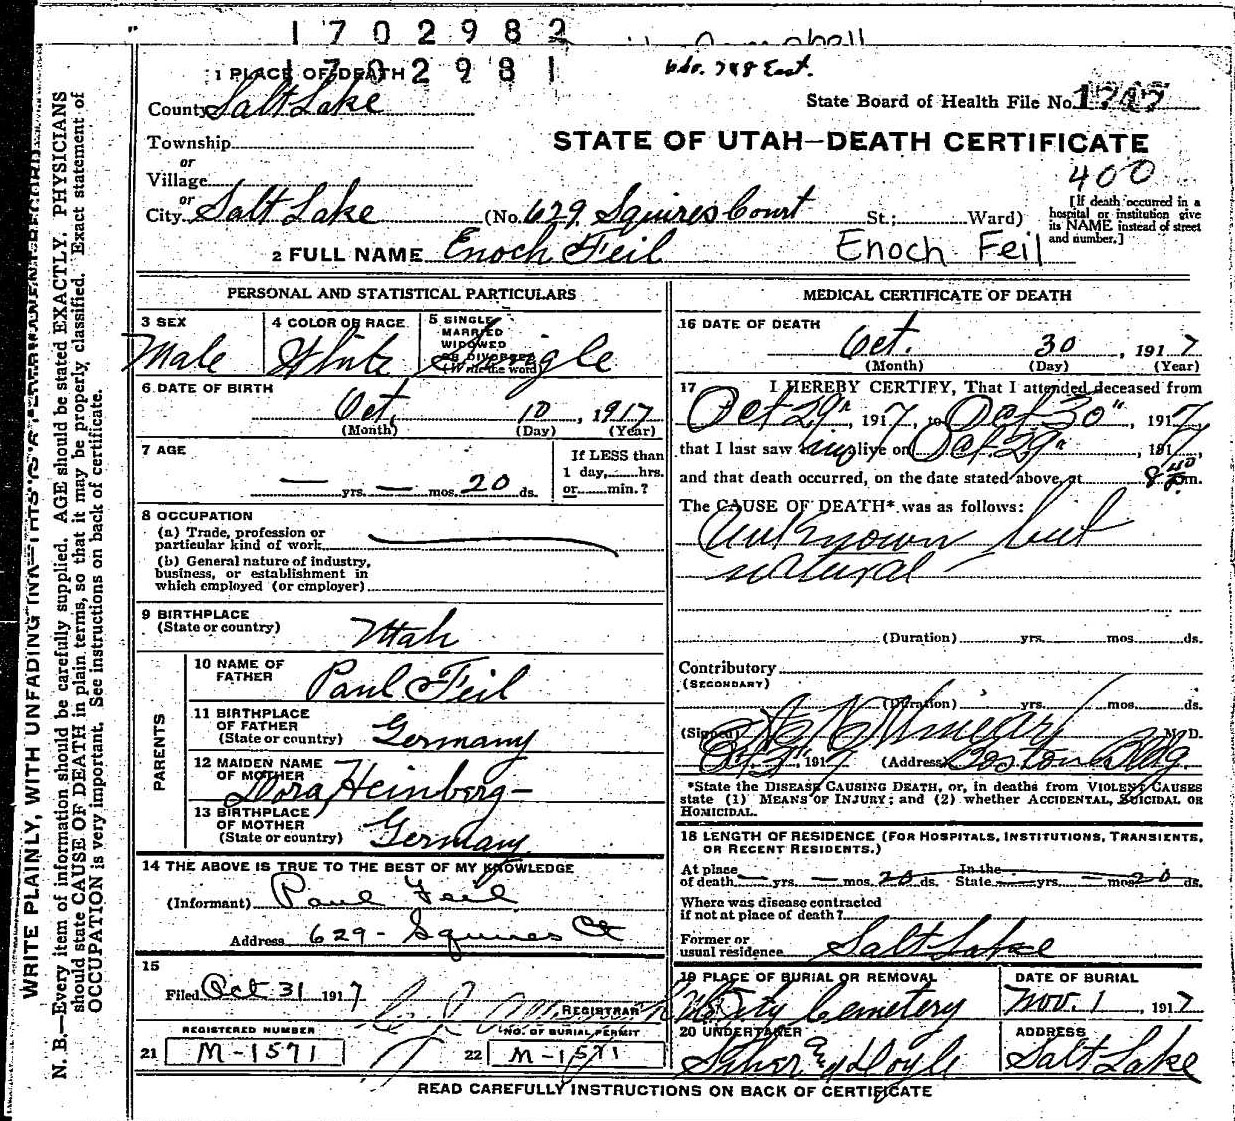 1 7 0 2 9 8 2
1 7 0 2 9 8 1
1 PLACE OF DEATH
County Salt Lake
State Board of Health File No. 1747
Township
or
Village
or
City Salt Lake (No. 629 Squires Court St.; Ward)
STATE OF UTAH—DEATH CERTIFICATE
400
[If death occurred in a
hospital or institution give
its NAME instead of street
and number.]
2 FULL NAME Enoch Feil Enoch Feil
PERSONAL AND STATISTICAL PARTICULARS
3 SEX
Male
4 COLOR OR RACE
White
5 SINGLE
MARRIED
WIDOWED
OR DIVORCED
(Write the word)
Single
6 DATE OF BIRTH
Oct. 10, 1917
(Month) (Day) (Year)
7 AGE
— yrs. — mos. 20 ds.
If LESS than
1 day, hrs.
or min.?
8 OCCUPATION
(a) Trade, profession or
particular kind of work
(b) General nature of industry,
business, or establishment in
which employed (or employer)
9 BIRTHPLACE
(State or country) Utah
PARENTS
10 NAME OF
FATHER Paul Feil
11 BIRTHPLACE
OF FATHER
(State or country) Germany
12 MAIDEN NAME
OF MOTHER Dora Heinberg—
13 BIRTHPLACE
OF MOTHER
(State or country) Germany
14 THE ABOVE IS TRUE TO THE BEST OF MY KNOWLEDGE
(Informant) Paul Feil
Address 629 - Squires Ct
15
Filed Oct 31 1917
REGISTRAR
REGISTERED NUMBER
21 M-1571
NO. OF BURIAL PERMIT
22 M-1571
MEDICAL CERTIFICATE OF DEATH
16 DATE OF DEATH
Oct. 30, 1917
(Month) (Day) (Year)
17 I HEREBY CERTIFY, That I attended deceased from
Oct 29", 1917, to Oct 30", 1917,
that I last saw him alive on Oct. 29", 1917,
and that death occurred, on the date stated above, at 8 40 P m.
The CAUSE OF DEATH* was as follows:
Unknown but
natural
(Duration) yrs. mos. ds.
Contributory
(SECONDARY)
(Duration) yrs. mos. ds.
(Signed) M. D.
Oct 31, 1917 (Address) Boston Bldg.
*State the DISEASE CAUSING DEATH, or, in deaths from VIOLENT CAUSES
state (1) MEANS OF INJURY; and (2) whether ACCIDENTAL, SUICIDAL OR
HOMICIDAL.
18 LENGTH OF RESIDENCE (FOR HOSPITALS, INSTITUTIONS, TRANSIENTS,
OR RECENT RESIDENTS.)
At place In the
of death — yrs. — mos. 20 ds. State — yrs. — mos. 20 ds.
Where was disease contracted
if not at place of death?
Former or
usual residence Salt Lake
19 PLACE OF BURIAL OR REMOVAL
City Cemetery
DATE OF BURIAL
Nov. 1, 1917
20 UNDERTAKER
ADDRESS
Salt Lake
READ CAREFULLY INSTRUCTIONS ON BACK OF CERTIFICATE
WRITE PLAINLY, WITH UNFADING INK—THIS IS A PERMANENT RECORD
N. B.—Every item of information should be carefully supplied. AGE should be stated EXACTLY. PHYSICIANS
should state CAUSE OF DEATH in plain terms, so that it may be properly classified. Exact statement of
OCCUPATION is very important. See instructions on back of certificate.